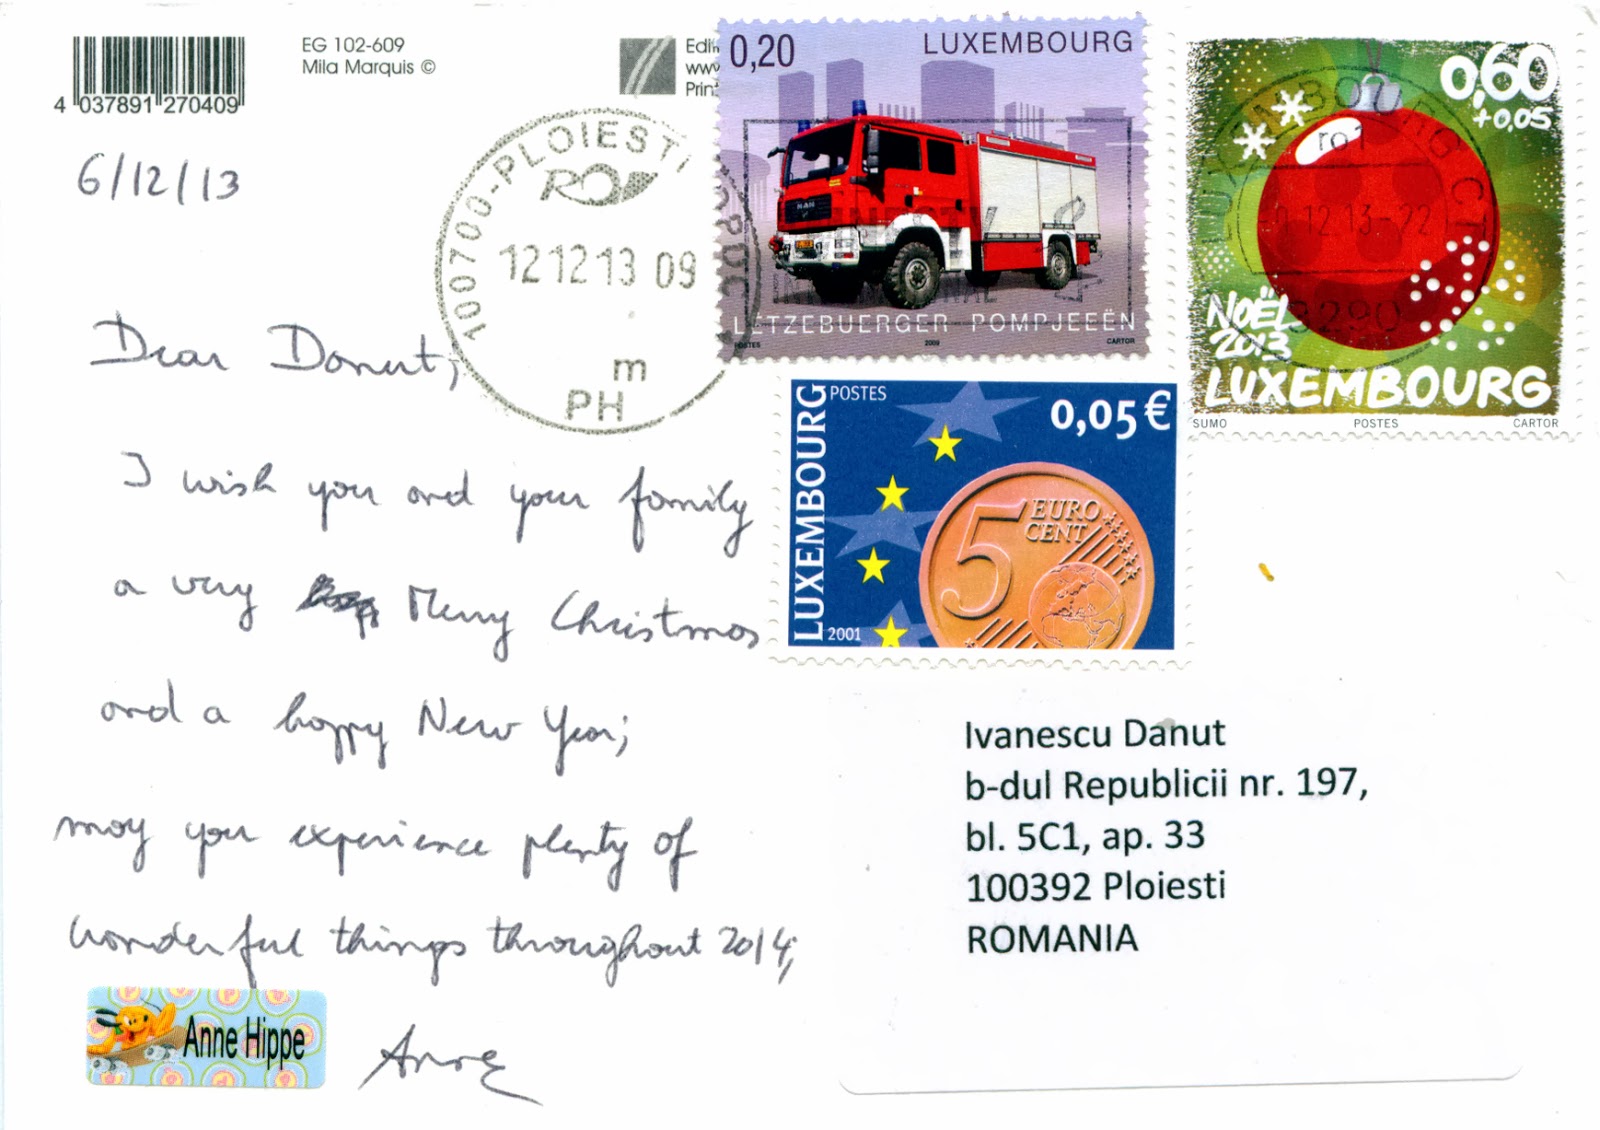 4 037891 270409
EG 102-609
Mila Marquis ©
Edit
www
Print
6/12/13
100700-PLOIESTI
12 12 13 09
m
PH
0,20 LUXEMBOURG
MAN
LETZEBUERGER POMPJEEËN
POSTES 2009 CARTOR
0,60
+0,05
12.13-22
3290
NOËL
2013
LUXEMBOURG
SUMO POSTES CARTOR
LUXEMBOURG
POSTES
0,05€
5 EURO
CENT
2001
Dear Donut,
I wish you and your family
a very Merry Christmas
and a happy New Year;
may you experience plenty of
wonderful things throughout 2014,
Anne Hippe
Anne
Ivanescu Danut
b-dul Republicii nr. 197,
bl. 5C1, ap. 33
100392 Ploiesti
ROMANIA